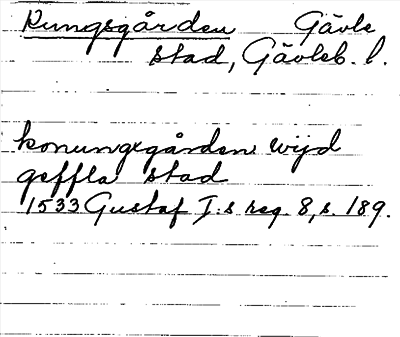 Kungsgården Gävle
stad, Gävleb. l.
konungxgården wijd
geffla stad
1533 Gustaf I:s reg. 8, s. 189.